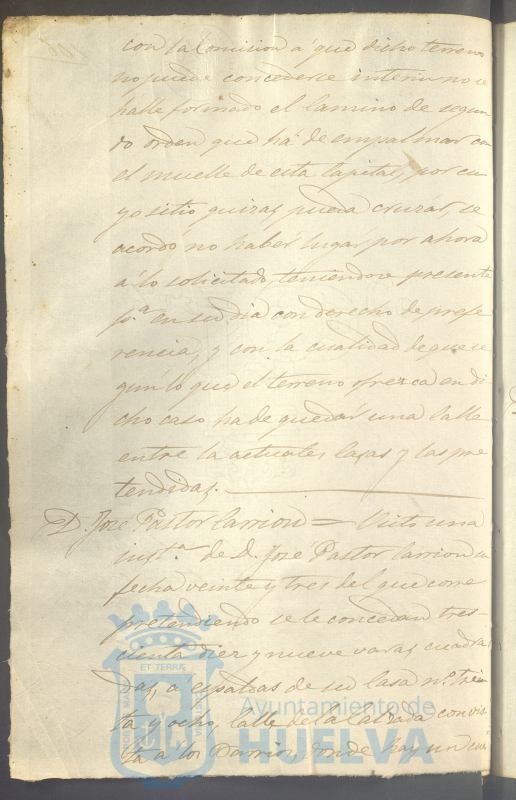 con la Comision á que dicho terreno
no puede concederse interin no se
halle formado el Camino de segun
do orden que há de empalmar con
el muelle de esta Capital, por cu
yo sitio quizas pueda cruzár, se
acordó no habér lugár por ahora
á lo solicitado, teniendose presente
pª en su dia con derecho de prefe
rencia, y con la cualidad de que se
gún lo que el terreno ofrezca en di
cho caso ha de quedár una Calle
entre la actuales Casas y las pre
tendidas.
D. José Pastor Carrion = Visto una
instª de D. José Pastor Carrion su
fecha veinte y tres del que corre
pretendiendo se le concedan tres-
cienta diez y nueve varas cuadra
das, a espaldas de su Casa nº trein
ta y ocho, Calle de la Calzada con vis
ta a los Barrios, donde hay un
ET TERRIS
Ayuntamiento de
HUELVA